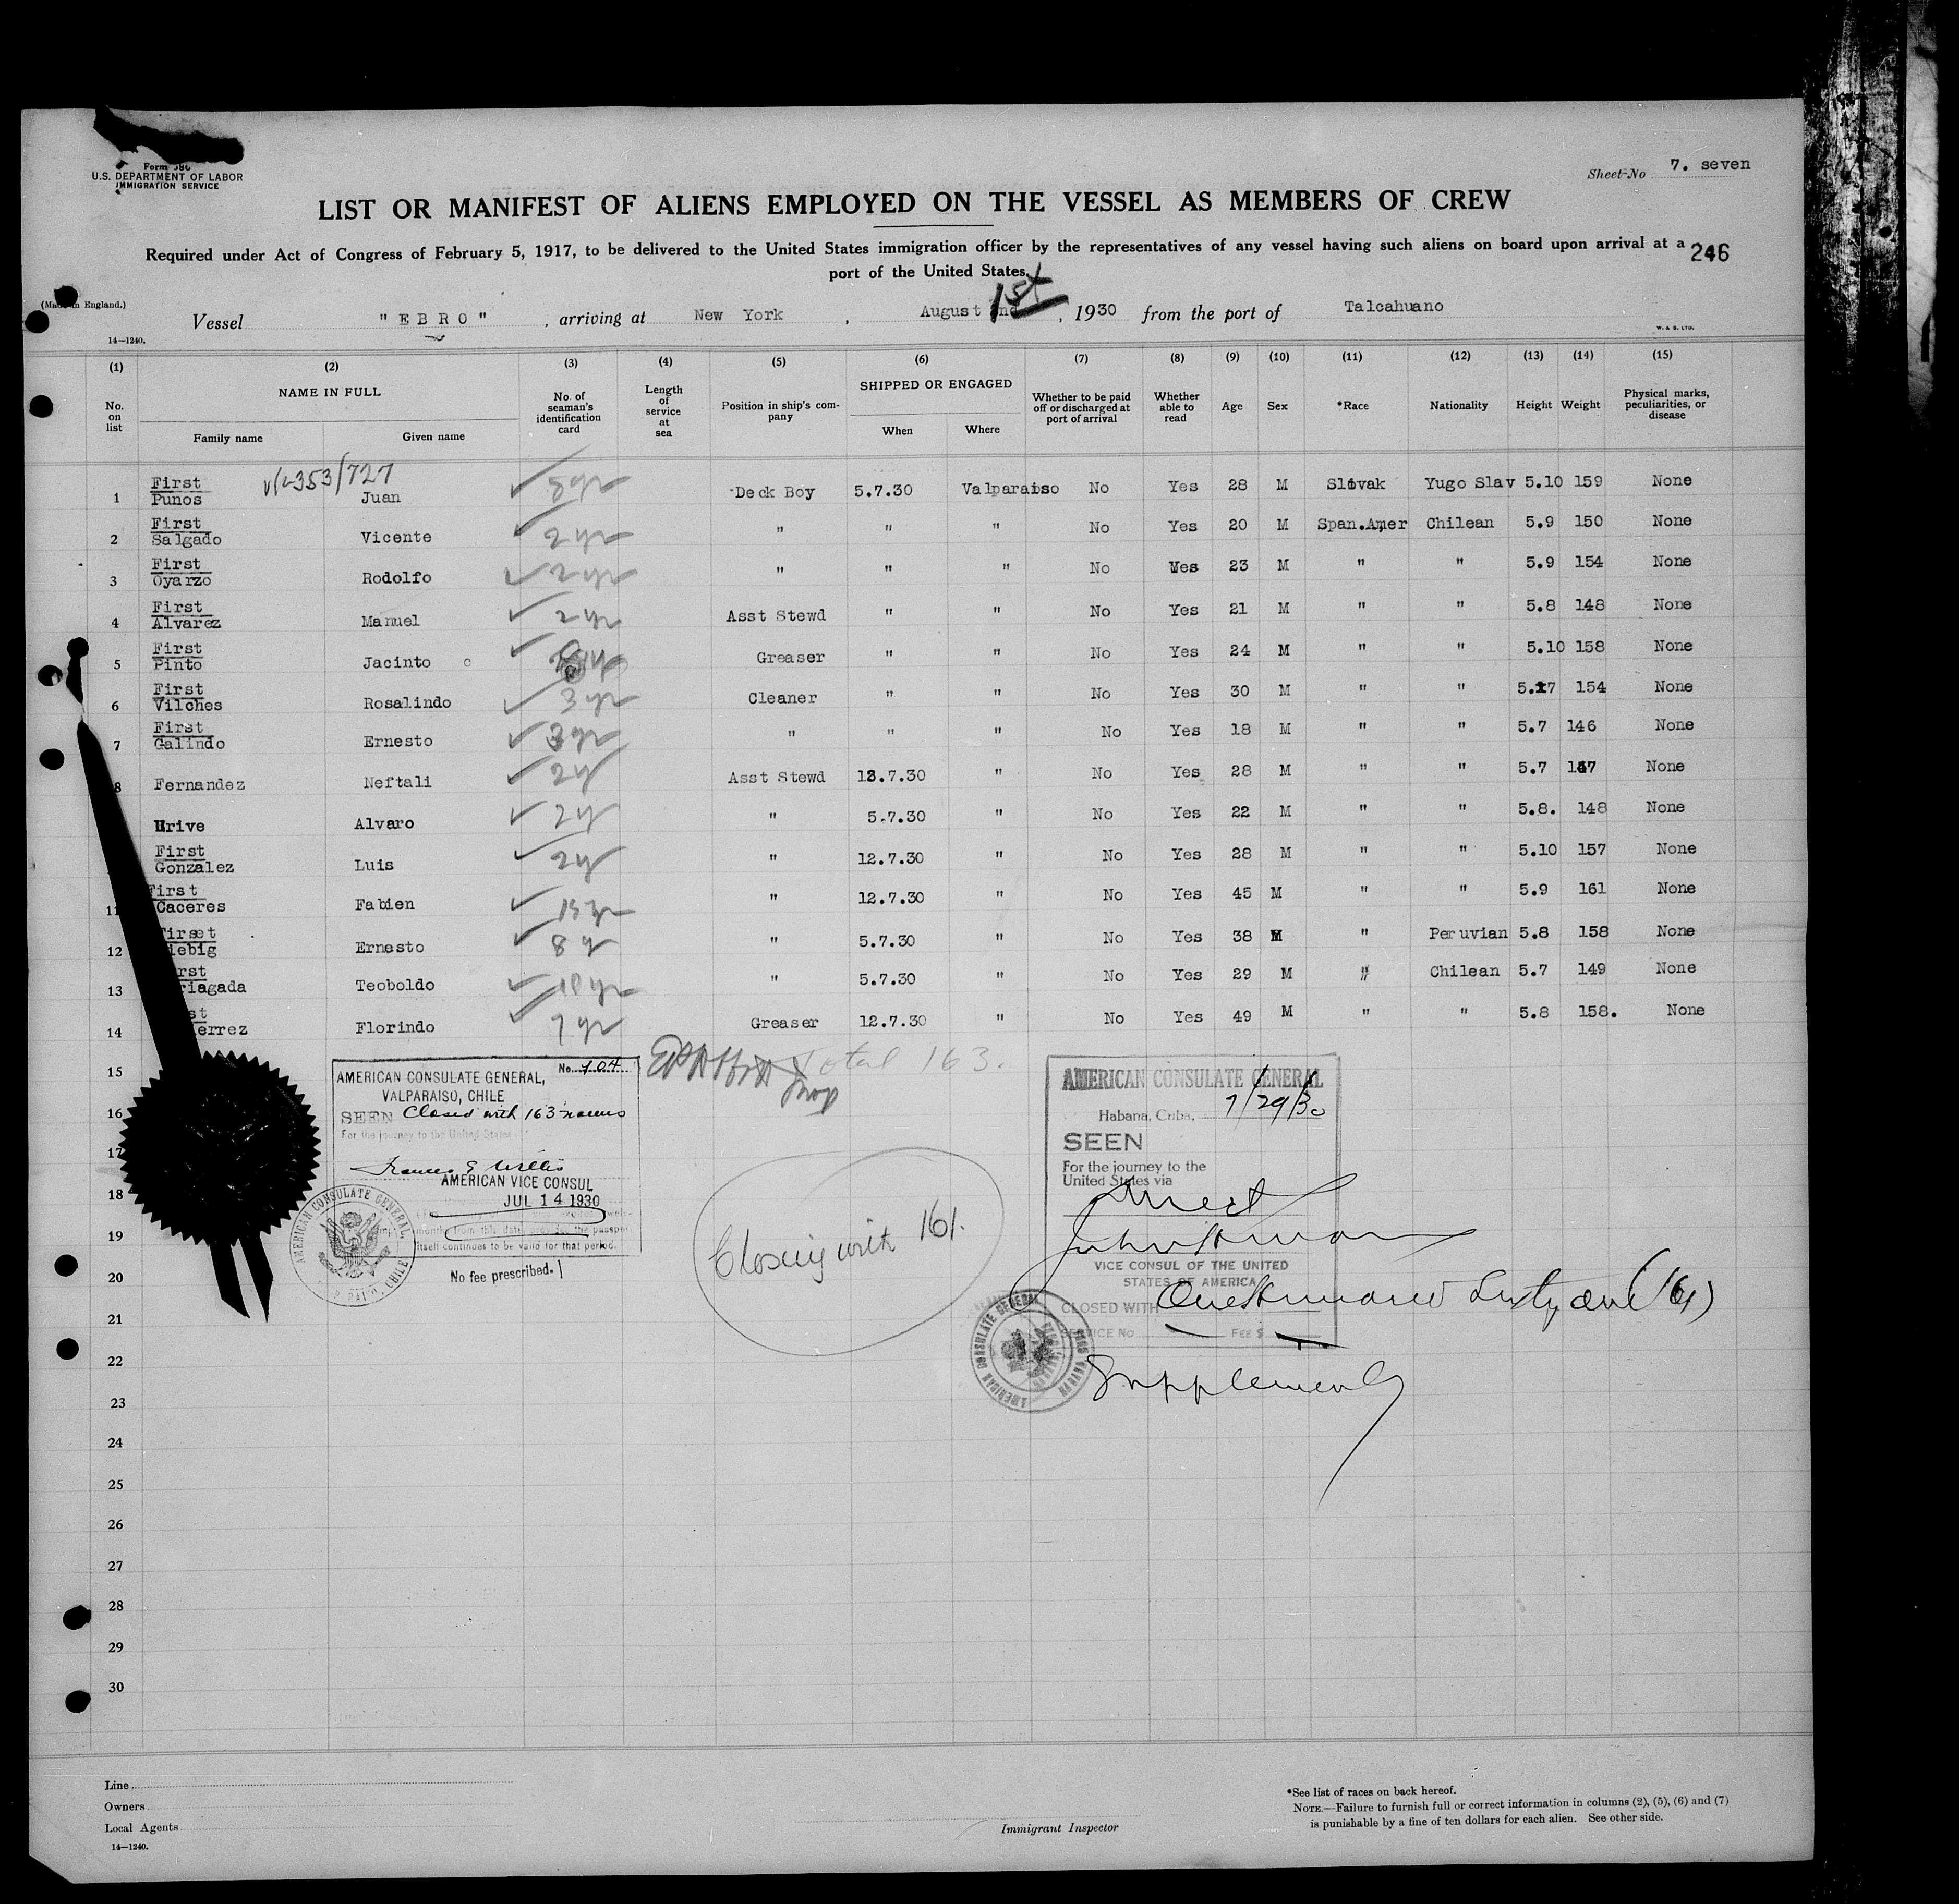 Form 680
U.S. DEPARTMENT OF LABOR
IMMIGRATION SERVICE
Sheet No 7. seven
LIST OR MANIFEST OF ALIENS EMPLOYED ON THE VESSEL AS MEMBERS OF CREW
Required under Act of Congress of February 5, 1917, to be delivered to the United States immigration officer by the representatives of any vessel having such aliens on board upon arrival at a
port of the United States.
246
(Made in England.)
Vessel "EBRO", arriving at New York, August 1st, 1930 from the port of Talcahuano
14—1240.
W. & S. LTD.
(1) (2) (3) (4) (5) (6) (7) (8) (9) (10) (11) (12) (13) (14) (15)
No. on list NAME IN FULL Family name Given name No. of seaman's identification card Length of service at sea Position in ship's company SHIPPED OR ENGAGED When Where Whether to be paid off or discharged at port of arrival Whether able to read Age Sex *Race Nationality Height Weight Physical marks, peculiarities, or disease
353/727
1 First Punos Juan 5 yr Deck Boy 5.7.30 Valparaiso No Yes 28 M Slovak Yugo Slav 5.10 159 None
2 First Salgado Vicente 2 yr " " " No Yes 20 M Span.Amer Chilean 5.9 150 None
3 First Oyarzo Rodolfo 2 yr " " " No Yes 23 M " " 5.9 154 None
4 First Alvarez Manuel 2 yr Asst Stewd " " No Yes 21 M " " 5.8 148 None
5 First Pinto Jacinto Greaser " " No Yes 24 M " " 5.10 158 None
6 First Vilches Rosalindo 3 yr Cleaner " " No Yes 30 M " " 5.7 154 None
7 First Galindo Ernesto 3 yr " " " No Yes 18 M " " 5.7 146 None
8 Fernandez Neftali 2 y Asst Stewd 12.7.30 " No Yes 28 M " " 5.7 147 None
Urive Alvaro 2 y " 5.7.30 " No Yes 22 M " " 5.8. 148 None
First Gonzalez Luis 2 y " 12.7.30 " No Yes 28 M " " 5.10 157 None
11 First Caceres Fabien 15 yr " 12.7.30 " No Yes 45 M " " 5.9 161 None
12 First iebig Ernesto 8 y " 5.7.30 " No Yes 38 M " Peruvian 5.8 158 None
13 rst riagada Teoboldo 10 yr " 5.7.30 " No Yes 29 M " Chilean 5.7 149 None
14 st errez Florindo 7 yr Greaser 12.7.30 " No Yes 49 M " " 5.8 158. None
Total 163.
15
16
17
18
19
20
21
22
23
24
25
26
27
28
29
30
No. 104
AMERICAN CONSULATE GENERAL,
VALPARAISO, CHILE
SEEN Closed with 163 names
For the journey to the United States
Frances E Willis
AMERICAN VICE CONSUL
JUL 14 1930
months from this date provided the passport
itself continues to be valid for that period.
No fee prescribed.
AMERICAN CONSULATE GENERAL
CHILE
Closing with 161.
AMERICAN CONSULATE GENERAL
Habana, Cuba, 7/29/30
SEEN
For the journey to the
United States via
Direct
VICE CONSUL OF THE UNITED
STATES OF AMERICA
CLOSED WITH One Hundred Sixty one (161)
SERVICE No FEE $
AMERICAN CONSULATE GENERAL
Line
Owners
Local Agents
14—1240.
Immigrant Inspector
*See list of races on back hereof.
NOTE.—Failure to furnish full or correct information in columns (2), (5), (6) and (7)
is punishable by a fine of ten dollars for each alien. See other side.